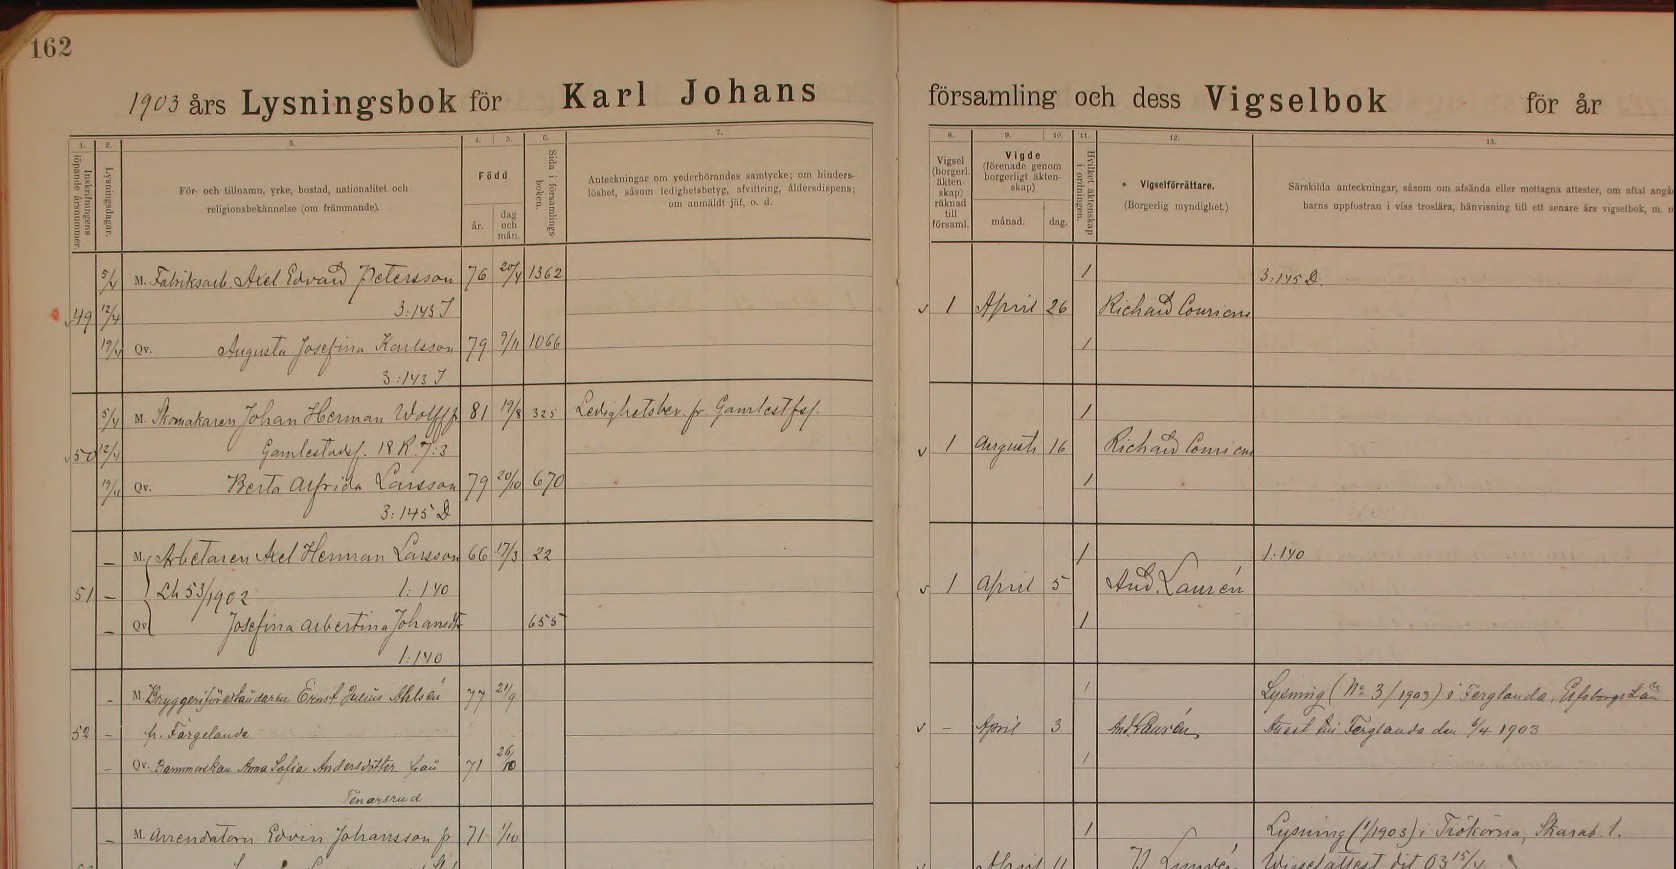 162
1903 års Lysningsbok för Karl Johans församling och dess Vigselbok för år
1. 2. 3. 4. 5. 6. 7. 8. 9. 10. 11. 12. 13.
Inskrifningens löpande årsnummer.
Lysningsdagar.
För- och tillnamn, yrke, bostad, nationalitet och
religionsbekännelse (om främmande).
Född
år.
dag och mån.
Sida i församlings-boken.
Anteckningar om vederbörandes samtycke; om hinders-
löshet, såsom ledighetsbetyg, afvittring, åldersdispens;
om anmäldt jäf, o. d.
Vigsel (borgerl. äkten-skap) räknad till församl.
Vigde
(förenade genom borgerligt äkten-skap)
månad.
dag.
Hvilket äktenskap i ordningen.
Vigselförrättare.
(Borgerlig myndighet.)
Särskilda anteckningar, såsom om afsända eller mottagna attester, om aftal
barns uppfostran i viss troslära, hänvisning till ett senare års vigselbok, m.
5/4 M. Fabriksarb. Axel Edvard Petersson 76 20/4 1362 1 3:145 D.
49 12/4 3:143 J v 1 April 26 Richard
19/4 Qv. Augusta Josefina Karlsson 79 9/11 1066 1
3:143 J
5/4 M. Skomakaren Johan Herman Wolff fr 81 19/8 325 Ledighetsbev. fr. Gamlest fsf. 1
50 12/4 Gamlestadsf. 18 R. 7:3 v 1 Augusti 16 Richard
19/4 Qv. Berta Alfrida Larsson 79 20/10 670 1
3:145 D
– M. Arbetaren Axel Herman Larsson 66 17/3 22 1 1:140
51 – Lh 53/1902 1:140 v 1 April 5 And. Laurén
– Qv. Josefina Albertina Johansdr 655 1
1:140
– M. Bryggeriföreståndaren Ernst Julius Ahlsén 77 21/9 1 Lysning (No 3/1903) i Ferglanda, Elfsborgs Län
52 – fr. Färgelanda v – April 3 And. Laurén Attest till Ferglanda den 6/4 1903
– Qv. Barnmorskan Anna Sofia Andersdotter från 71 26/10 1
Tenarsrud
– M. Arrendatorn Edvin Johansson fr. 71 1/10 1 Lysning (1/1903) i Trökörna, Skarab. l.
April 11 Vigselattest dit 03 15/4